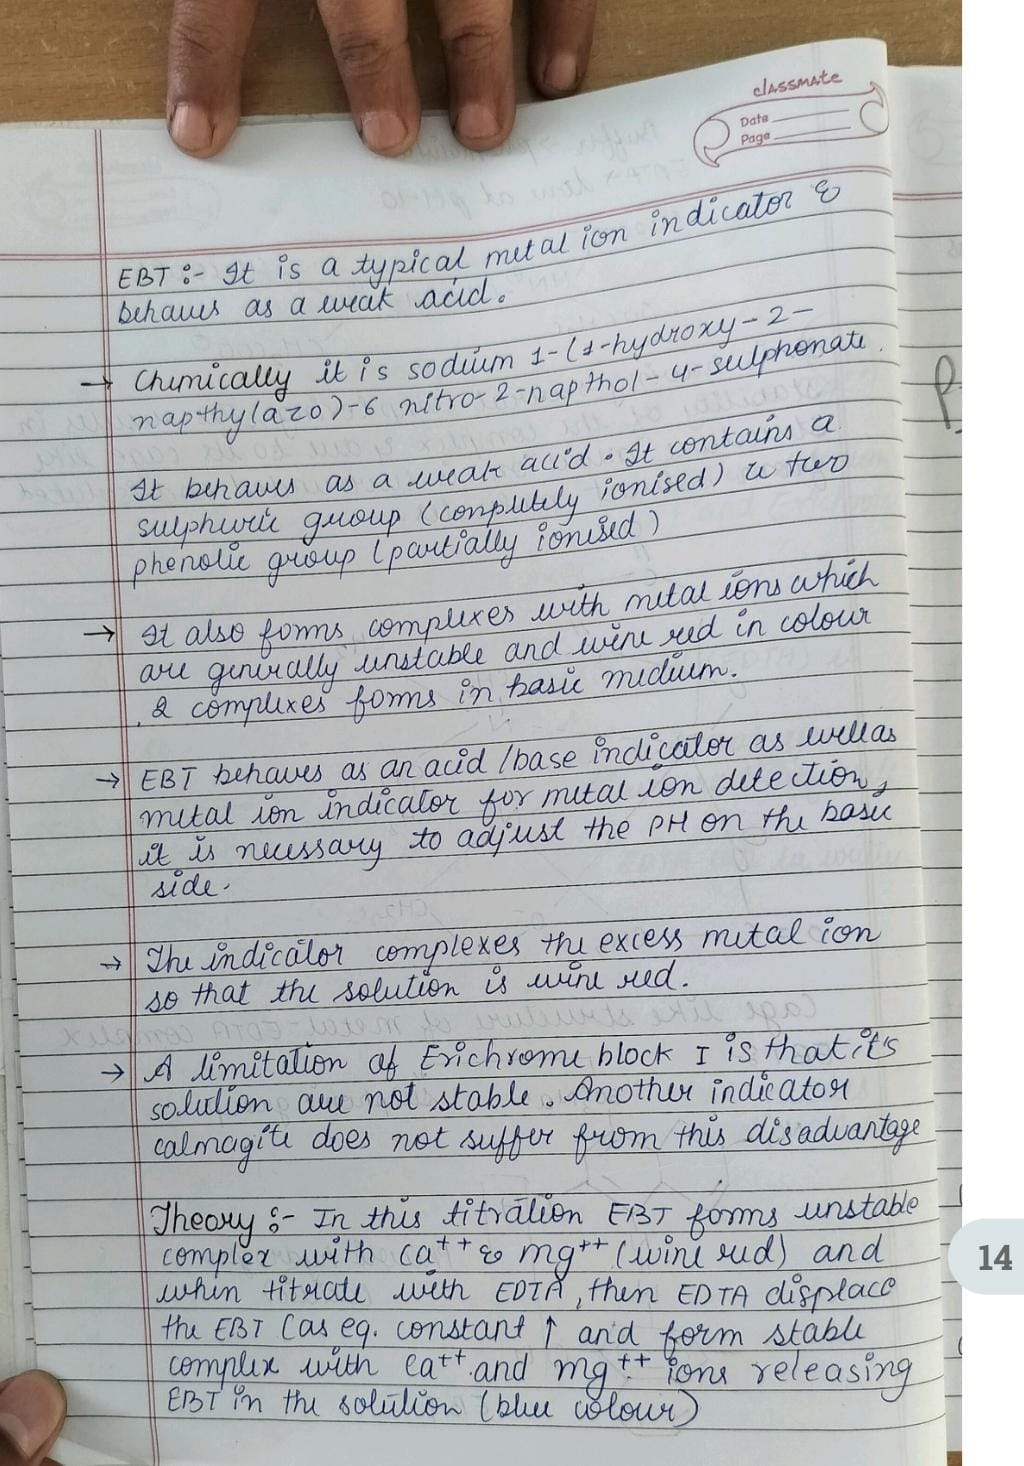 classmate
Date
Page
EBT :- It is a typical metal ion indicator &
behaves as a weak acid.
→ Chemically it is sodium 1-(1-hydroxy-2-
napthy(azo)-6 nitro-2-napthol-4-sulphonate.
It behaves as a weak acid. It contains a
sulphuric group (conpletely ionised) & two
phenolic group (partially ionised)
→ It also forms complexes with metal ions which
are generally unstable and wine red in colour
& complexes forms in basic medium.
→ EBT behaves as an acid/base indicator as well as
metal ion indicator for metal ion detection,
it is necessary to adjust the PH on the basic
side.
→ The indicator complexes the excess metal ion
so that the solution is wine red.
→ A limitation of Erichrome block I is that it's
solution are not stable. Another indicator
calmagite does not suffer from this disadvantage
Theory :- In this titration EBT forms unstable
complex with Ca++ & mg++ (wine red) and
when titrate with EDTA, then EDTA displace
the EBT (as eq. constant ↑ and form stable
complex with Ca++ and mg++ ions releasing
EBT in the solution (blue colour)
14